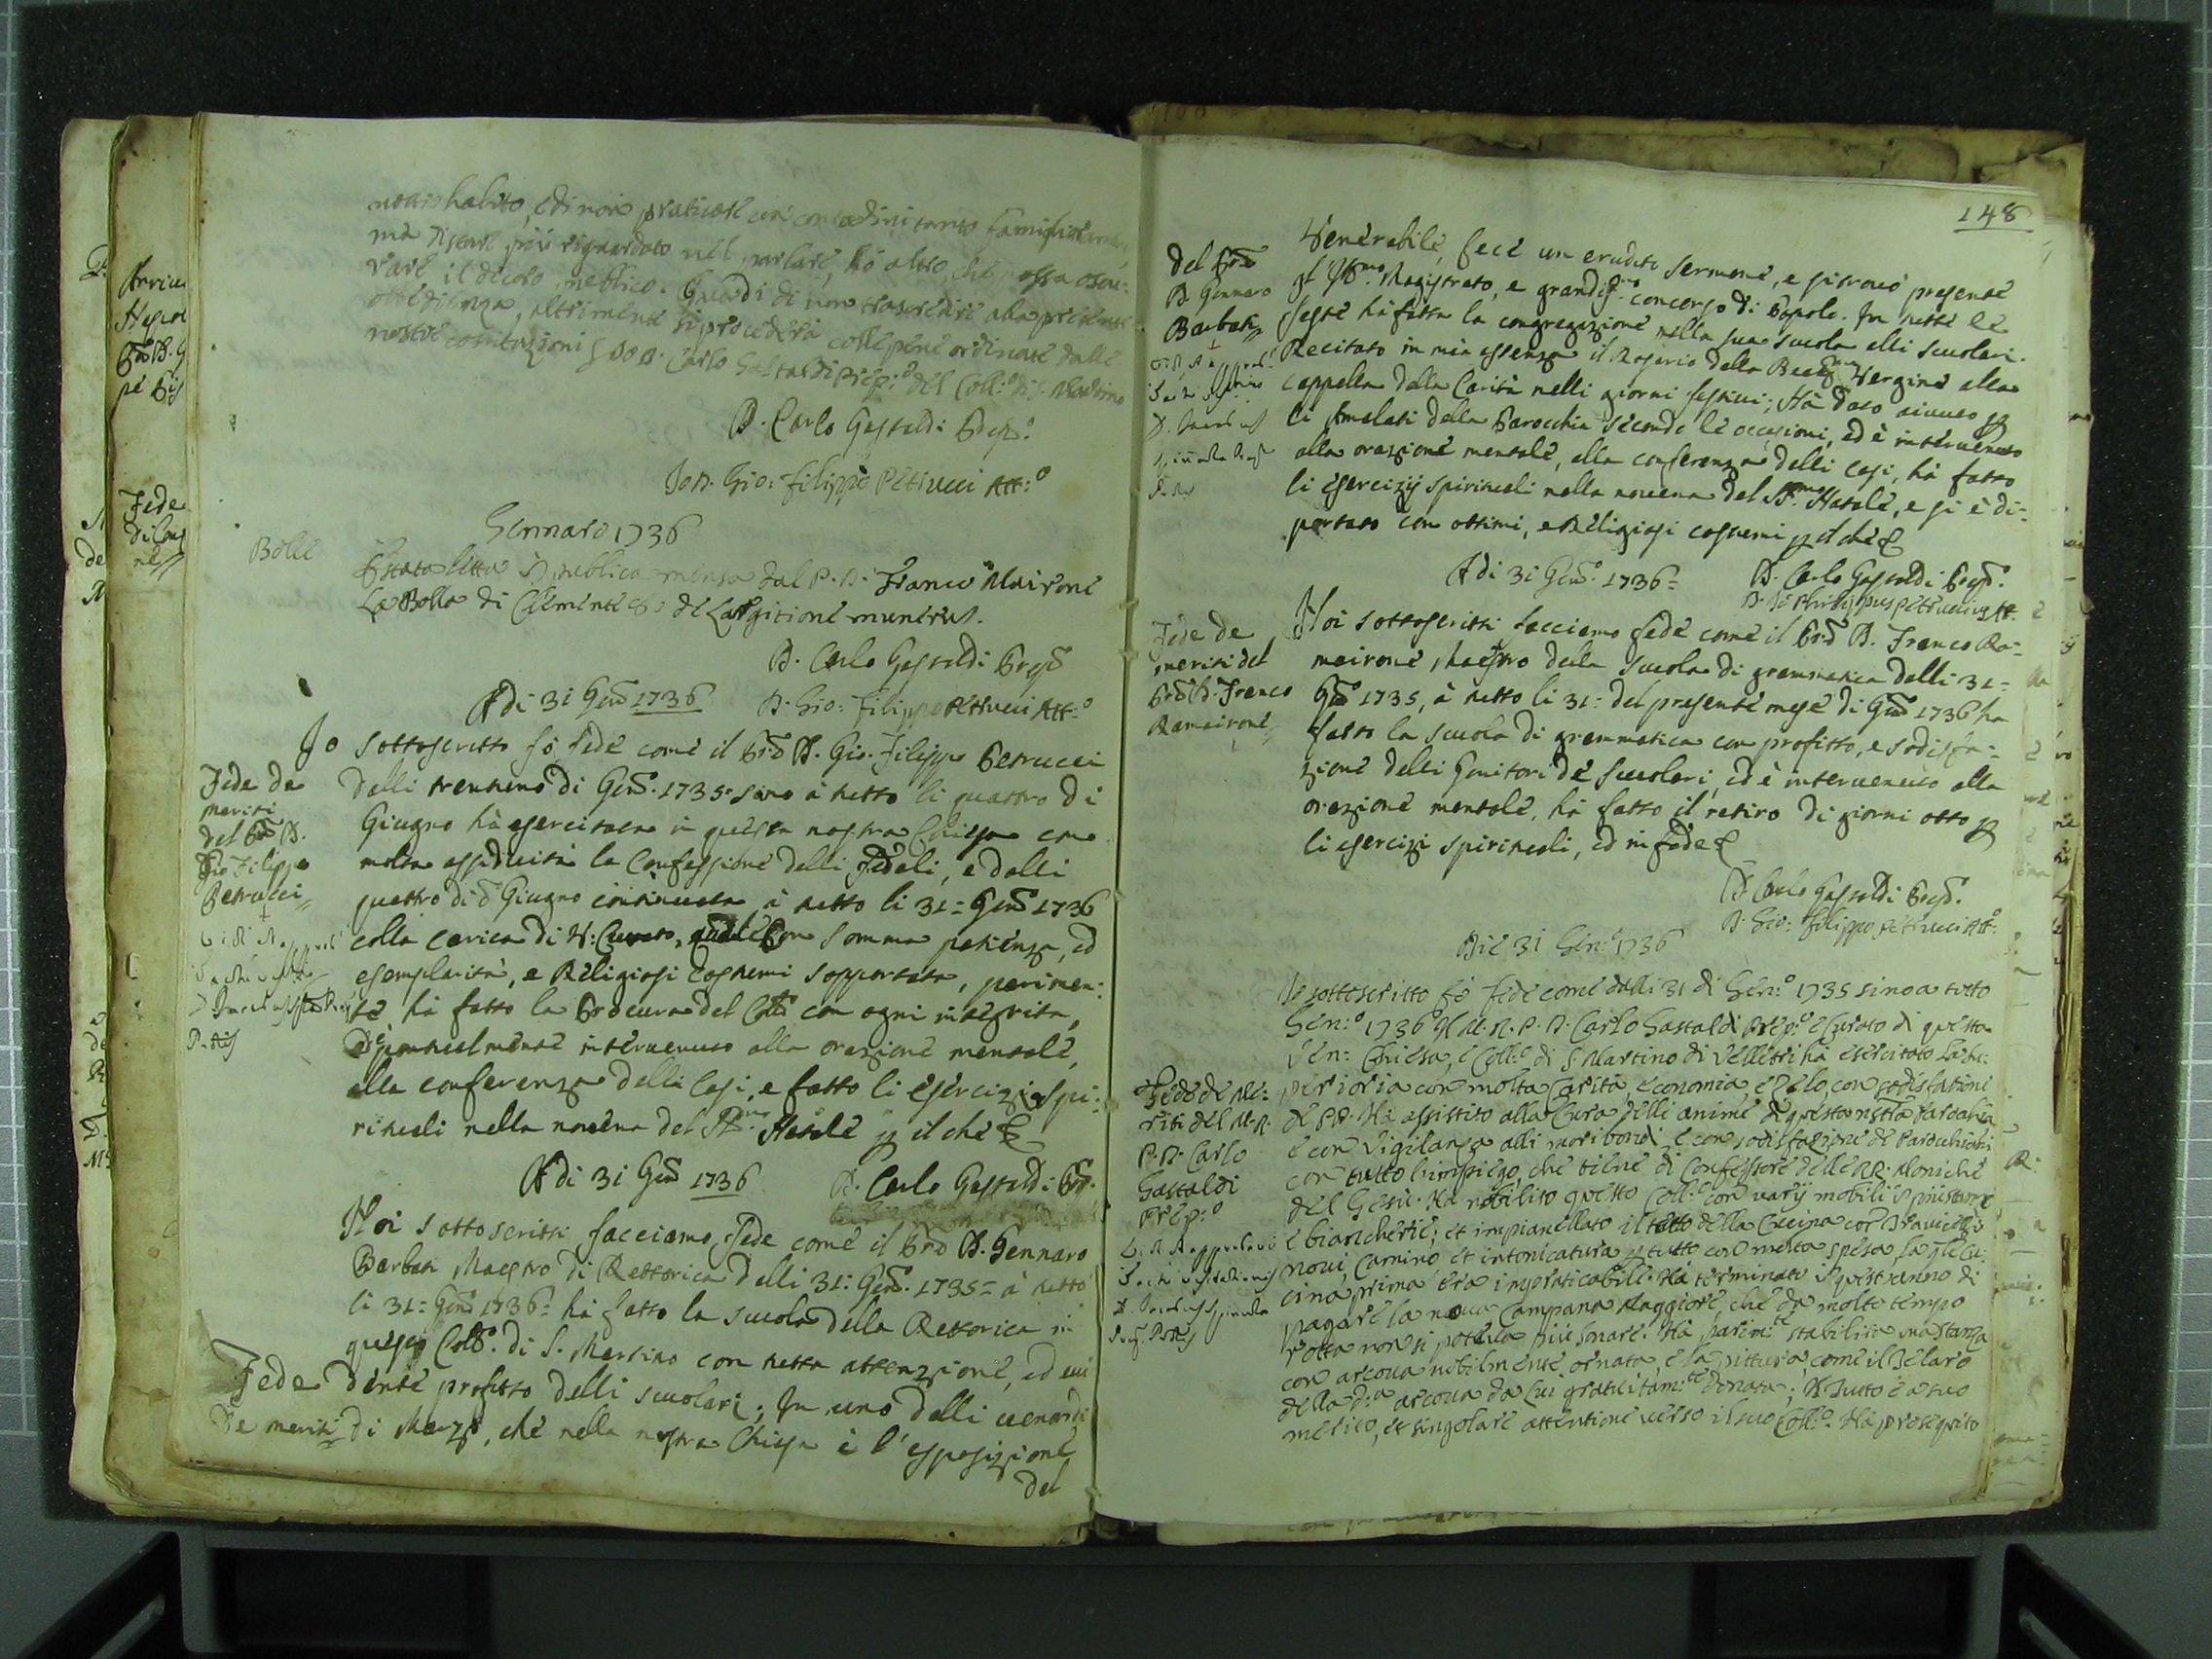 nostro habito, e di non praticare con contadini tanto familiarmente,
ma d'essere più riguardato nel parlare, ho altro, che possa oscu:
rare il decoro publico. Guardi di non trasgredire alla presente
obbedienza, altrimente si procederà colle pene ordinate dalle
nostre constituzioni D. Carlo Gastaldi Prep:o del Coll:o di S. Martino
D. Carlo Gastaldi Prep:o
Io D. Gio: Filippo Petrucci Att:o
Gennaro 1736
Bolle
È stata letta in publica mensa dal P. D. Franco Mairone
La Bolla di Clemente 8o de Largitione munerum.
D. Carlo Gastaldi Prepo
A di 31 Geno 1736
D. Gio: Filippo Petrucci Att:o
Fede de
meriti
del Prd D.
Gio Filippo
Petrucci
Io sottoscritto fò fede come il Prd D. Gio. Filippo Petrucci
dalli trentuno di Geno. 1735 sino à tutto li quattro di
Giugno hà esercitata in questa nostra Chiesa con
molta assiduità la Confessione delli Fedeli, e dalli
quattro di do Giugno continuata à tutto li 31 = Geno 1736
colla carica di V: Curato, con somma pazienza, ed
esemplarità, e Religiosi costumi sopportata, parimen:
te hà fatto la Procura del Collo con ogni integrità,
è pontualmente intervenuto alla orazione mentale,
alla conferenza delli Casi, e fatto li esercizi Spi:
rituali nella novena del SSmo Natale p il che &
A di 31 Geno 1736
D. Carlo Gastaldi Prp.
Noi sottoscritti facciamo fede come il Prd D. Gennaro
Barbati Maestro di Rettorica dalli 31: Geno. 1735 = à tutto
li 31 = Geno 1736 = hà fatto la scuola della Rettorica in
questo Collo. di S. Martino con tutta attenzione, ed evi
Fede
dente profitto delli scuolari; In uno delli venerdì
de meriti
di Marzo, che nella nostra Chiesa è l'esposizione
del
148
del Prd
D. Gennaro
Barbati
Venerabile, fece un erudito sermone, e si trovò presente
gl' Illmo. Magistrato, e grandissimo concorso di Popolo. In tutte le
feste hà fatta la congregazione nella sua scuola alli scuolari.
Recitato in mia assenza il Rosario della Beatma Vergine alla
cappella della Carità nelli giorni festivi; Hà dato aiuto p
li Amalati della Parocchia secondo le occasioni, ed è intervenuto
alla orazione mentale, alla conferenza delli casi, hà fatto
li esercizij spirituali nella novena del SSmo Natale, e si è di:
portato con ottimi, e Religiosi costumi p il che &
A di 31 Geno. 1736 =
D. Carlo Gastaldi Prepo.
D. Jo: Philippus Petruccius Att.
Fede de
meriti del
Prd D. Franco
Ramairone
Noi sottoscritti facciamo fede come il Prd D. Franco Ra:
mairone, Maestro della scuola di grammatica dalli 31 =
Geno 1735, à tutto li 31: del presente mese di Geno 1736 ha
fatto la scuola di grammatica con profitto, e sodisfa:
zione delli Genitori de' scuolari, ed è intervenuto alla
orazione mentale, hà fatto il retiro di giorni otto p
li esercizi spirituali, ed in fede &
D. Carlo Gastaldi Prepo.
D. Gio: Filippo Petrucci Att:o
Die 31 Gen:o 1736
Fede de Me:
riti del M. R.
P. D. Carlo
Gastaldi
Prep:o
Io sottoscritto fò fede come dalli 31 di Gen:o 1735 sino a tutto
Gen:o 1736 Il M. R. P. D. Carlo Gastaldi Prep:o e Curato di questa
Ven: Chiesa, e Coll:o di S. Martino di Velletri hà esercitato la Su:
perioria con molta Carità, economia e Zelo con sodisfatione
de PP. Ha assistito alla Cura delli anime di questa nostra Parochia
e con Vigilanza alli moribondi, e con sodisfazione de Parochiani
con tutto l'impiego, che tiene di Confessore delle RR. Moniche
del Gesù. Ha nobilito questo Coll:o con varij mobili in più stanze,
e biancherie; et impianellato il tetto della Cucina con Travicelli
novi Camino et intonicatura p tutto con molta spesa, la qle Cu:
cina prima era impraticabile. Hà terminato in quest'anno di
pagare la nova Campana Maggiore, che da molto tempo
rotta non si poteva più sonare. Hà parim:te stabilita una stanza
con arcova nobilmente ornata, e la pittura, come il Telaro
della d:a arcova da lui gratuitam:te donata; Il tutto è a suo
merito, et singolare attentione verso il suo Coll:o. Ha proseguito